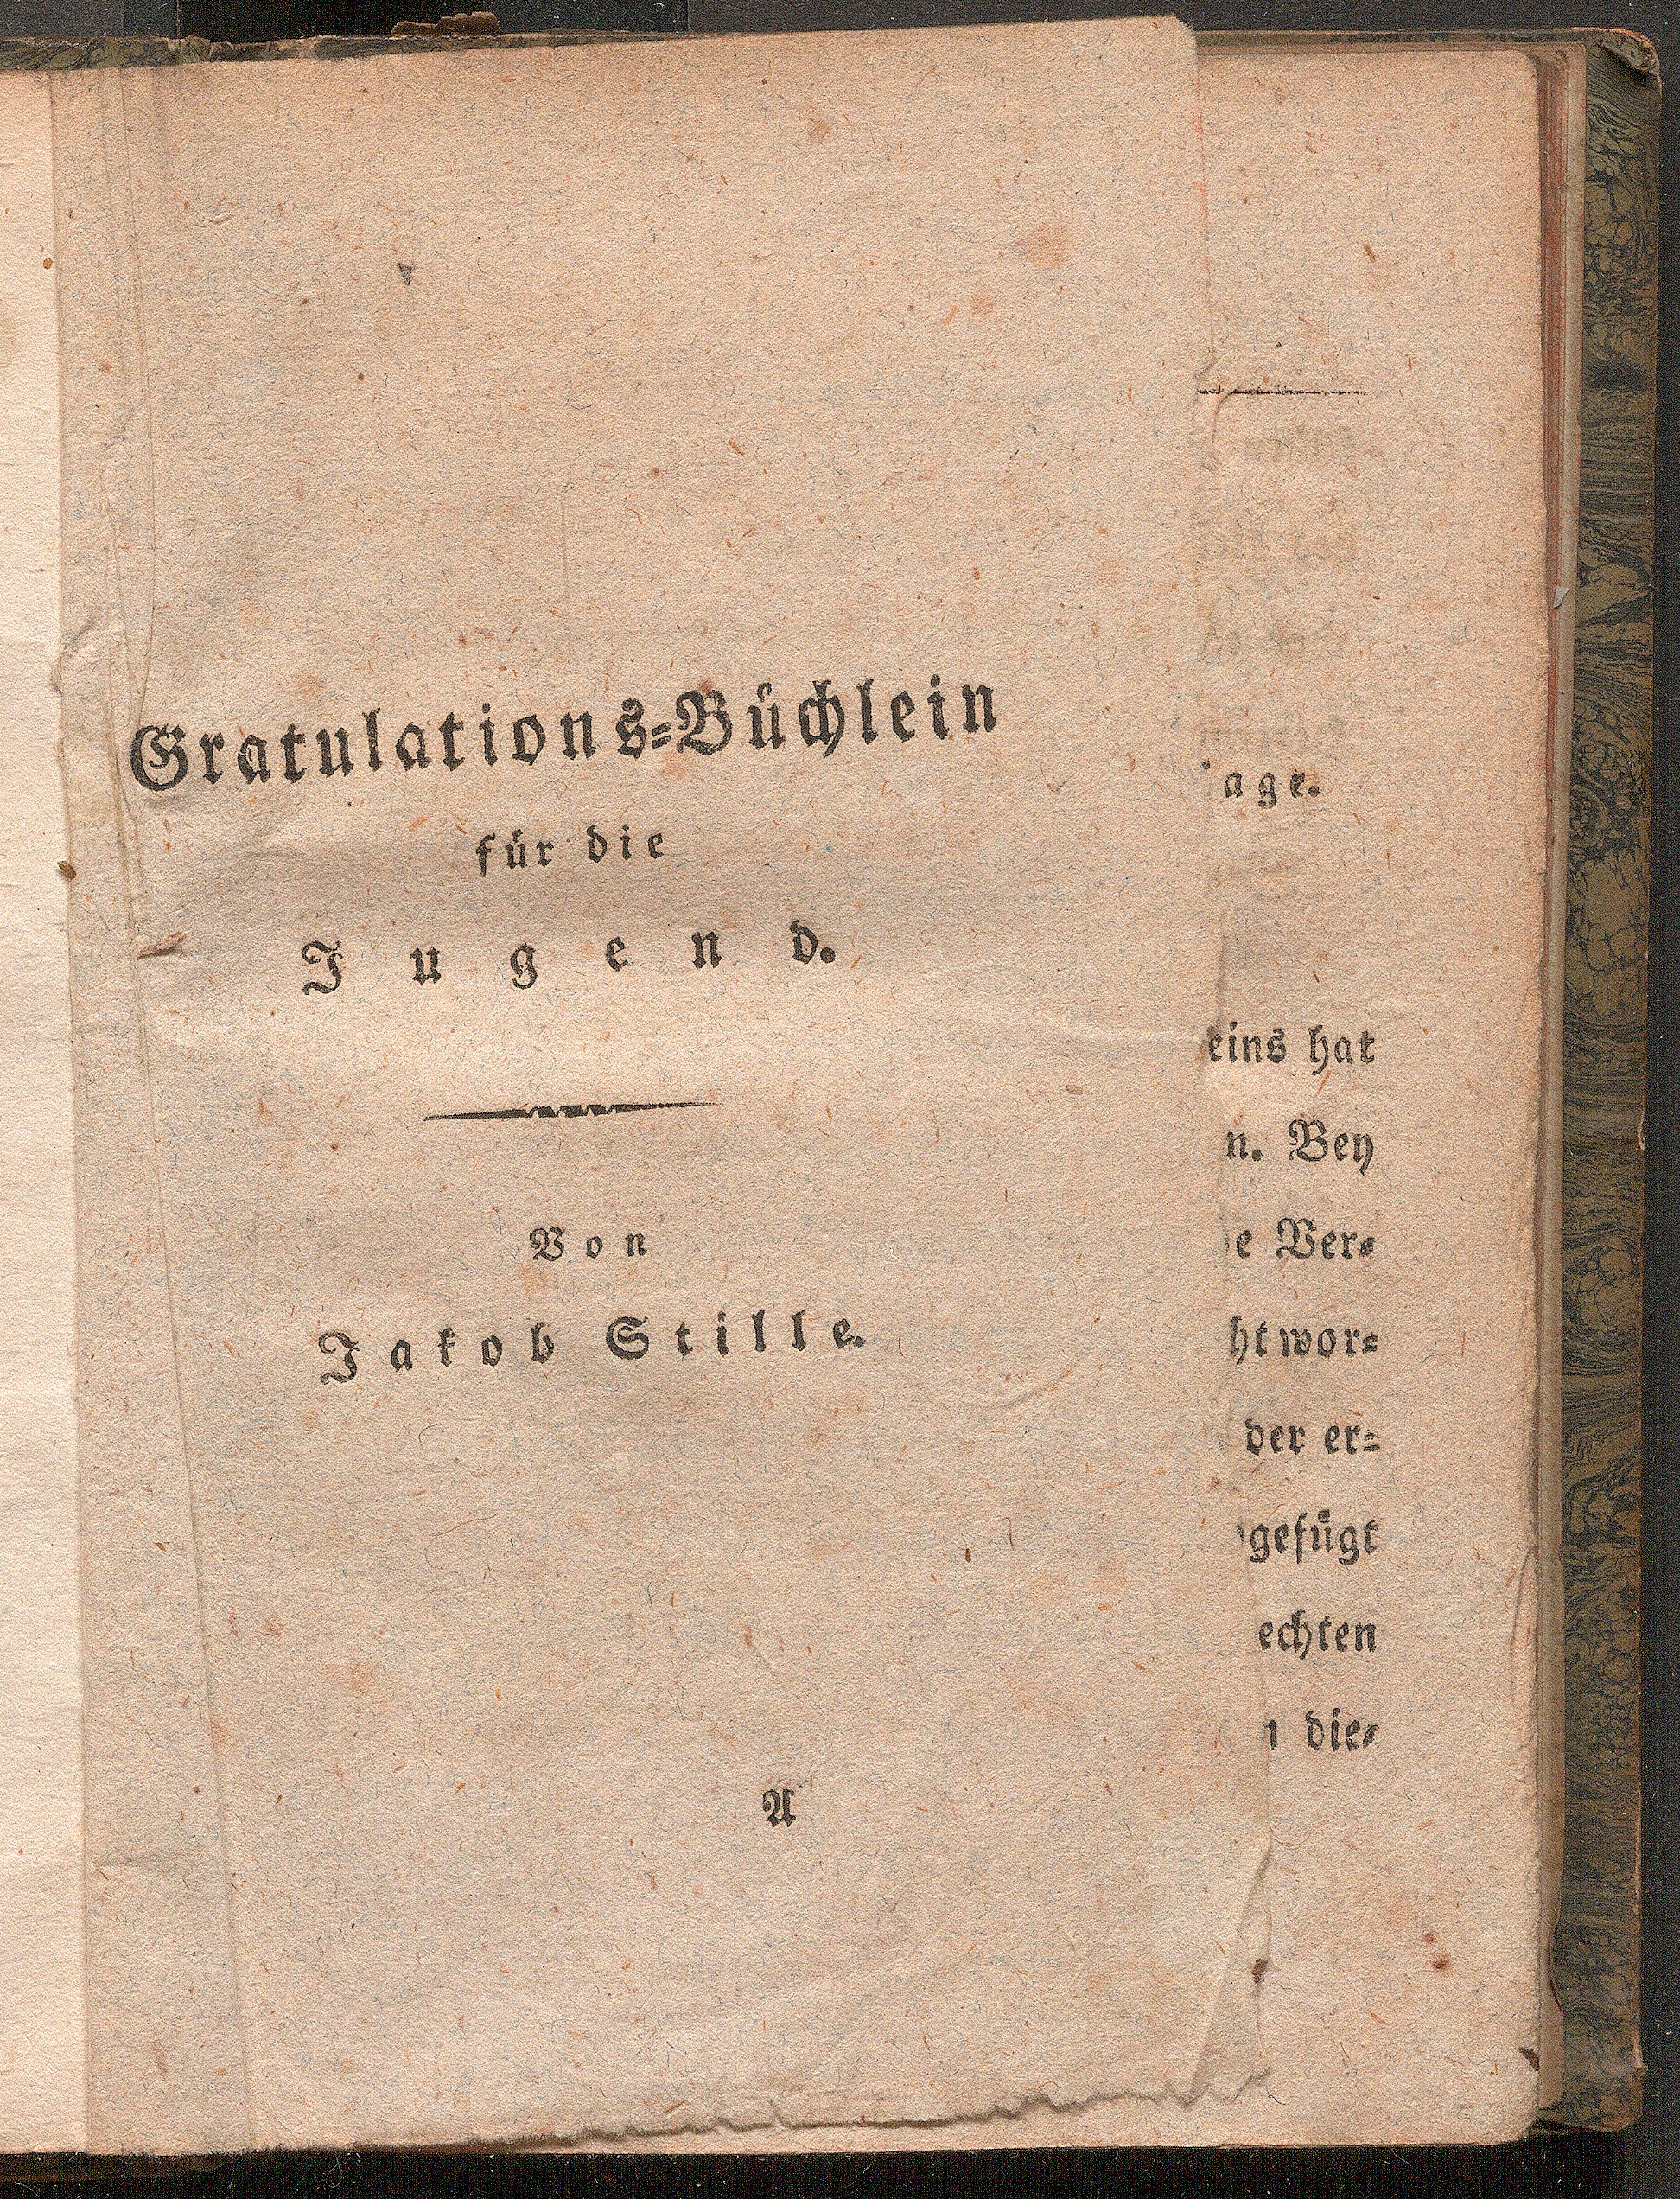 Gratulations=Büchlein
für die
Jugend.
Von
Jakob Stille.
A
age.
eins hat
n. Bey
e Ver=
ht wor=
der er=
gefügt
echten
die=